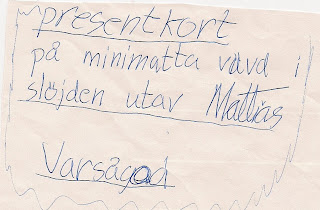 presentkort
på minimatta vävd i
slöjden utav Mattias
Varsågod